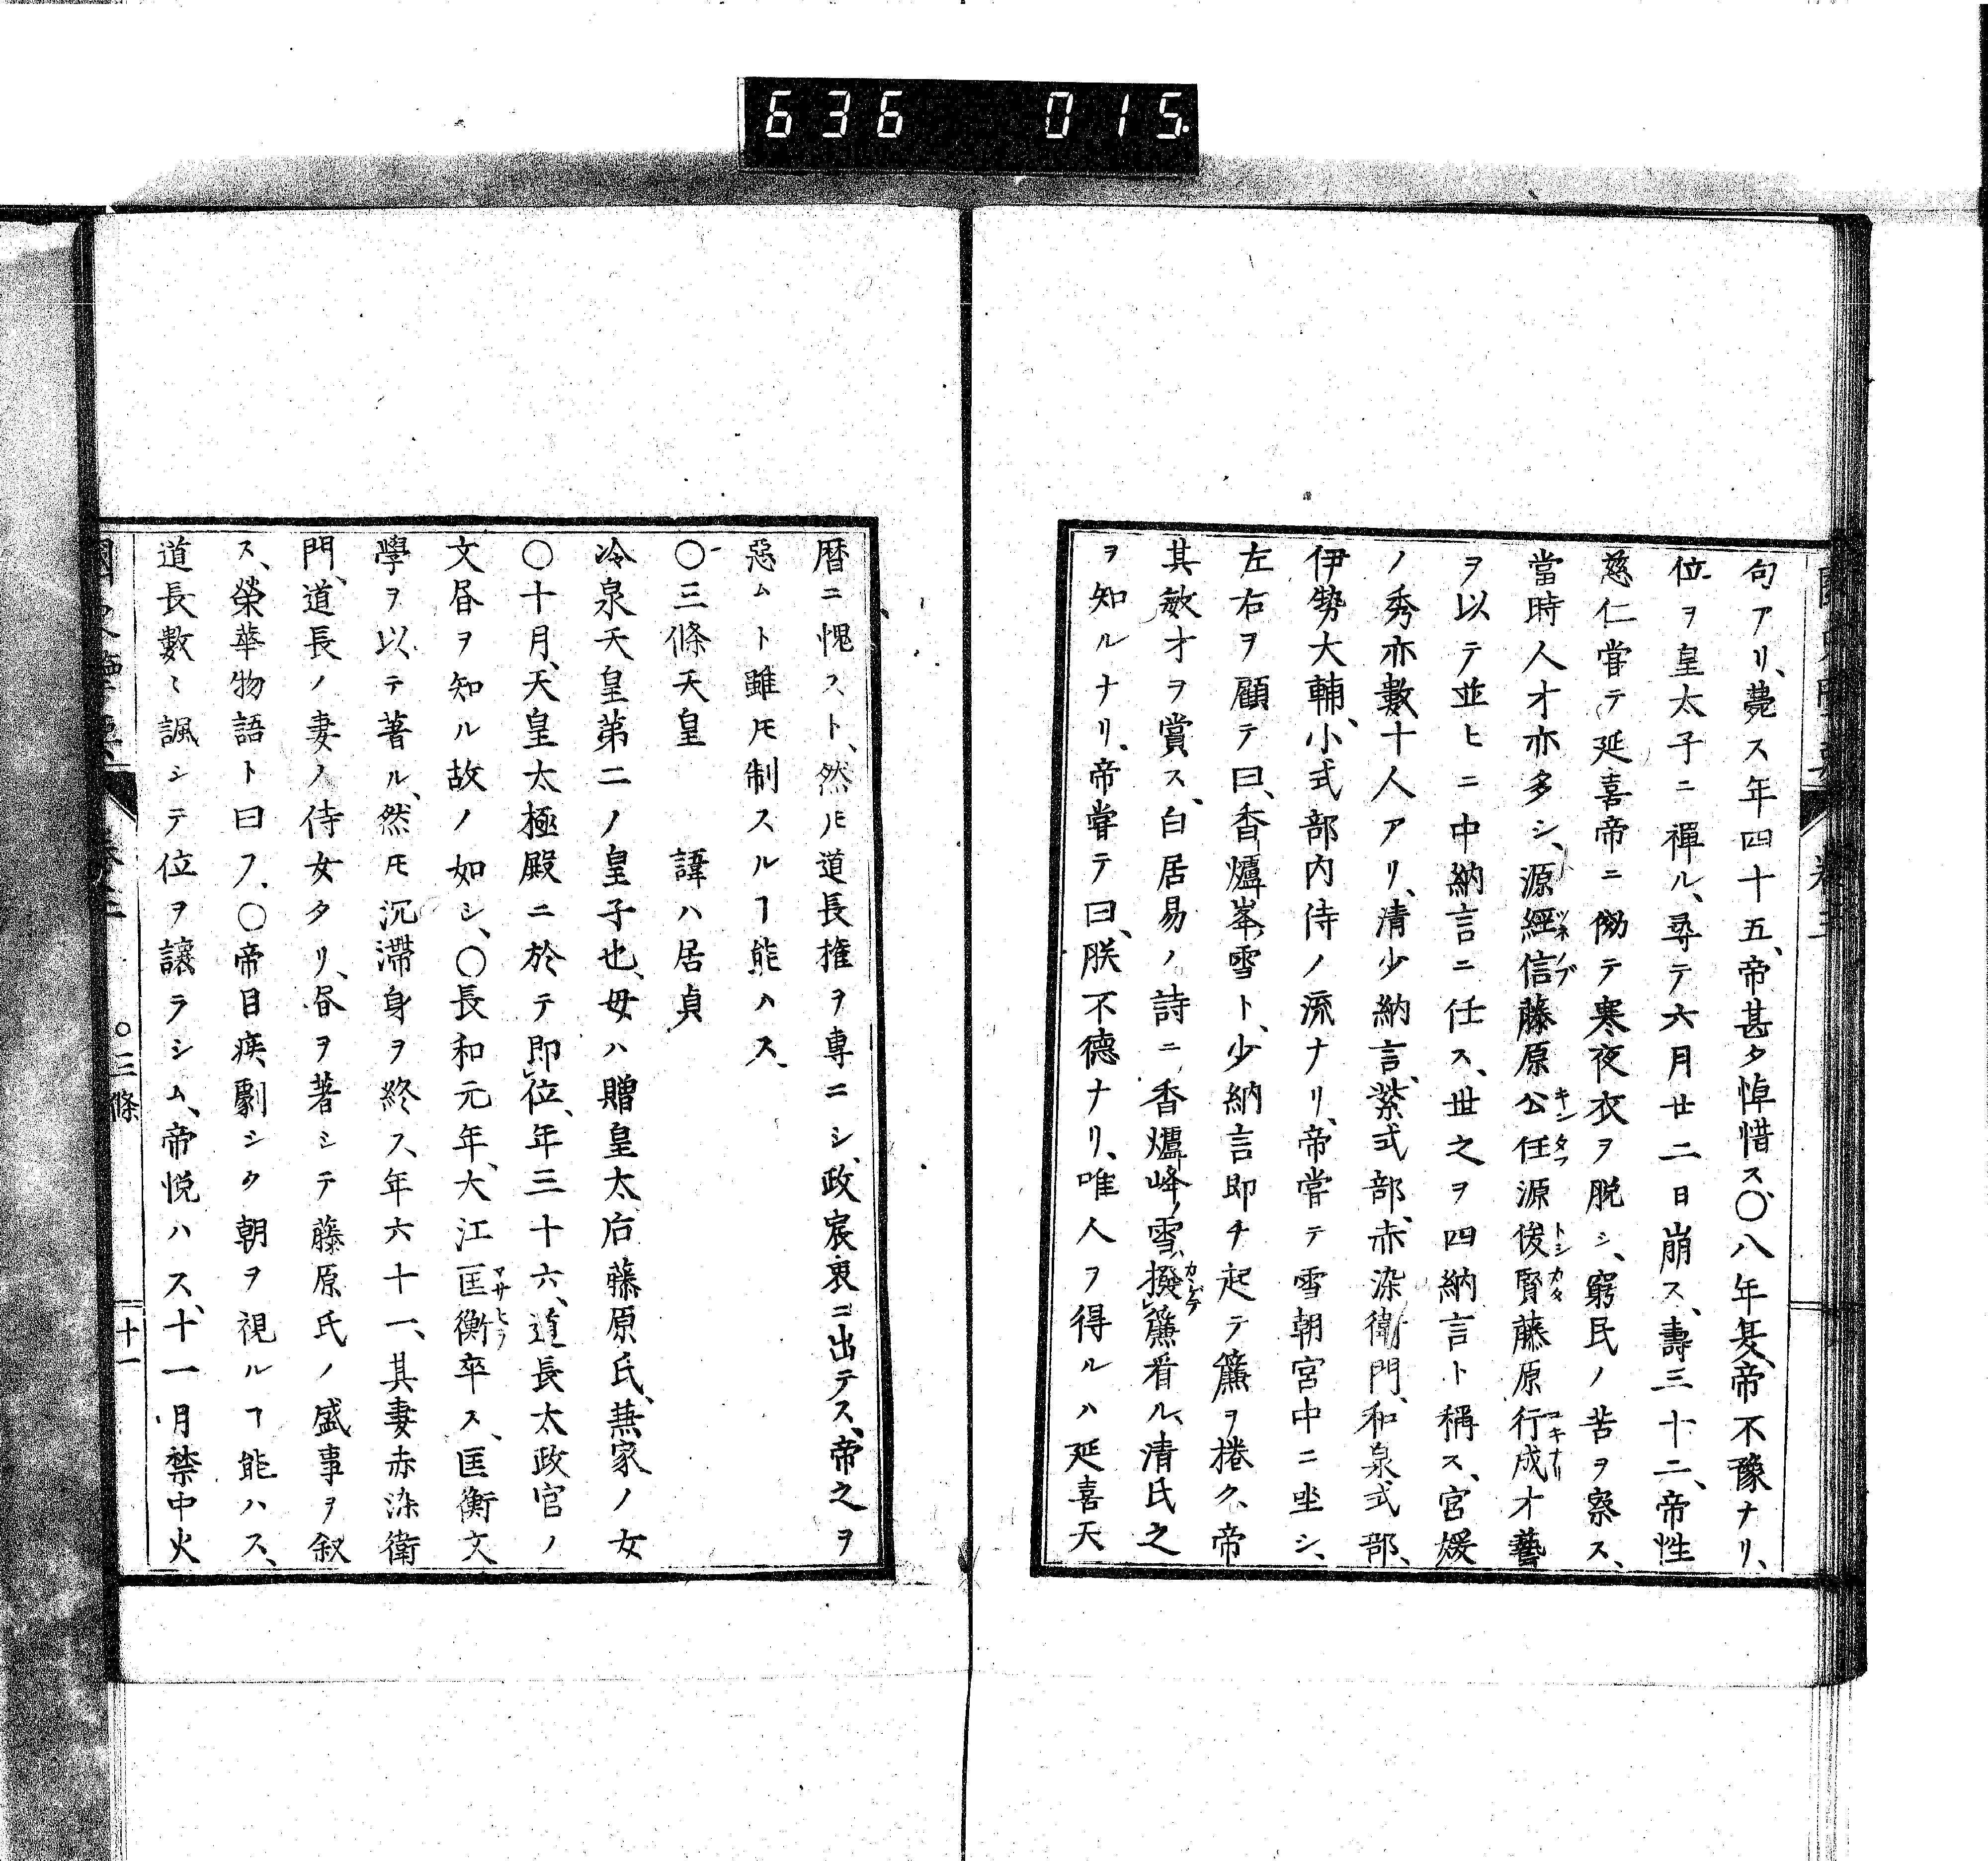 636 015
句アリ、薨ス年四十五、帝甚タ悼惜ス、〇八年夏、帝不豫ナリ、
位ヲ皇太子ニ禪ル、尋テ六月廿二日崩ス、壽三十二、帝性
慈仁嘗テ延喜帝ニ傚テ寒夜衣ヲ脱シ、窮民ノ苦ヲ察ス、
當時人才亦多シ、源經信藤原公任源俊賢藤原行成才藝
ヲ以テ並ヒニ中納言ニ任ス、世之ヲ四納言ト稱ス、宮媛
ノ秀亦數十人アリ、清少納言、紫式部、赤染衛門、和泉式部、
伊勢大輔、小式部内侍ノ流ナリ、帝嘗テ雪朝宮中ニ坐シ、
左右ヲ顧テ曰、香爐峯雪ト、少納言即チ起テ簾ヲ捲ク、帝
其敏才ヲ賞ス、白居易ノ詩ニ香爐峰ノ雪、撥簾看ル、清氏之
ヲ知ルナリ、帝嘗テ曰、朕不德ナリ、唯人ヲ得ルハ延喜天
暦ニ愧スト、然ㇳモ道長権ヲ専ニシ、政宸衷ニ出テス、帝之ヲ
惡ムト雖ㇳモ制スルヿ能ハス、
〇三條天皇 諱ハ居貞
冷泉天皇第二ノ皇子也、母ハ贈皇太后藤原氏、兼家ノ女
〇十月、天皇太極殿ニ於テ即位、年三十六、道長太政官ノ
文昏ヲ知ル故ノ如シ、〇長和元年、大江匡衡卒ス、匡衡文
學ヲ以テ著ル、然ㇳモ沉滯身ヲ終ス、年六十一、其妻赤染衛
門、道長ノ妻ノ侍女タリ、昏ヲ著シテ藤原氏ノ盛事ヲ叙
ス、榮華物語ト曰フ、〇帝目疾劇シク朝ヲ視ルヿ能ハス、
道長數〻諷シテ位ヲ讓ラシム、帝悦ハス、十一月禁中火
〇三條
十一